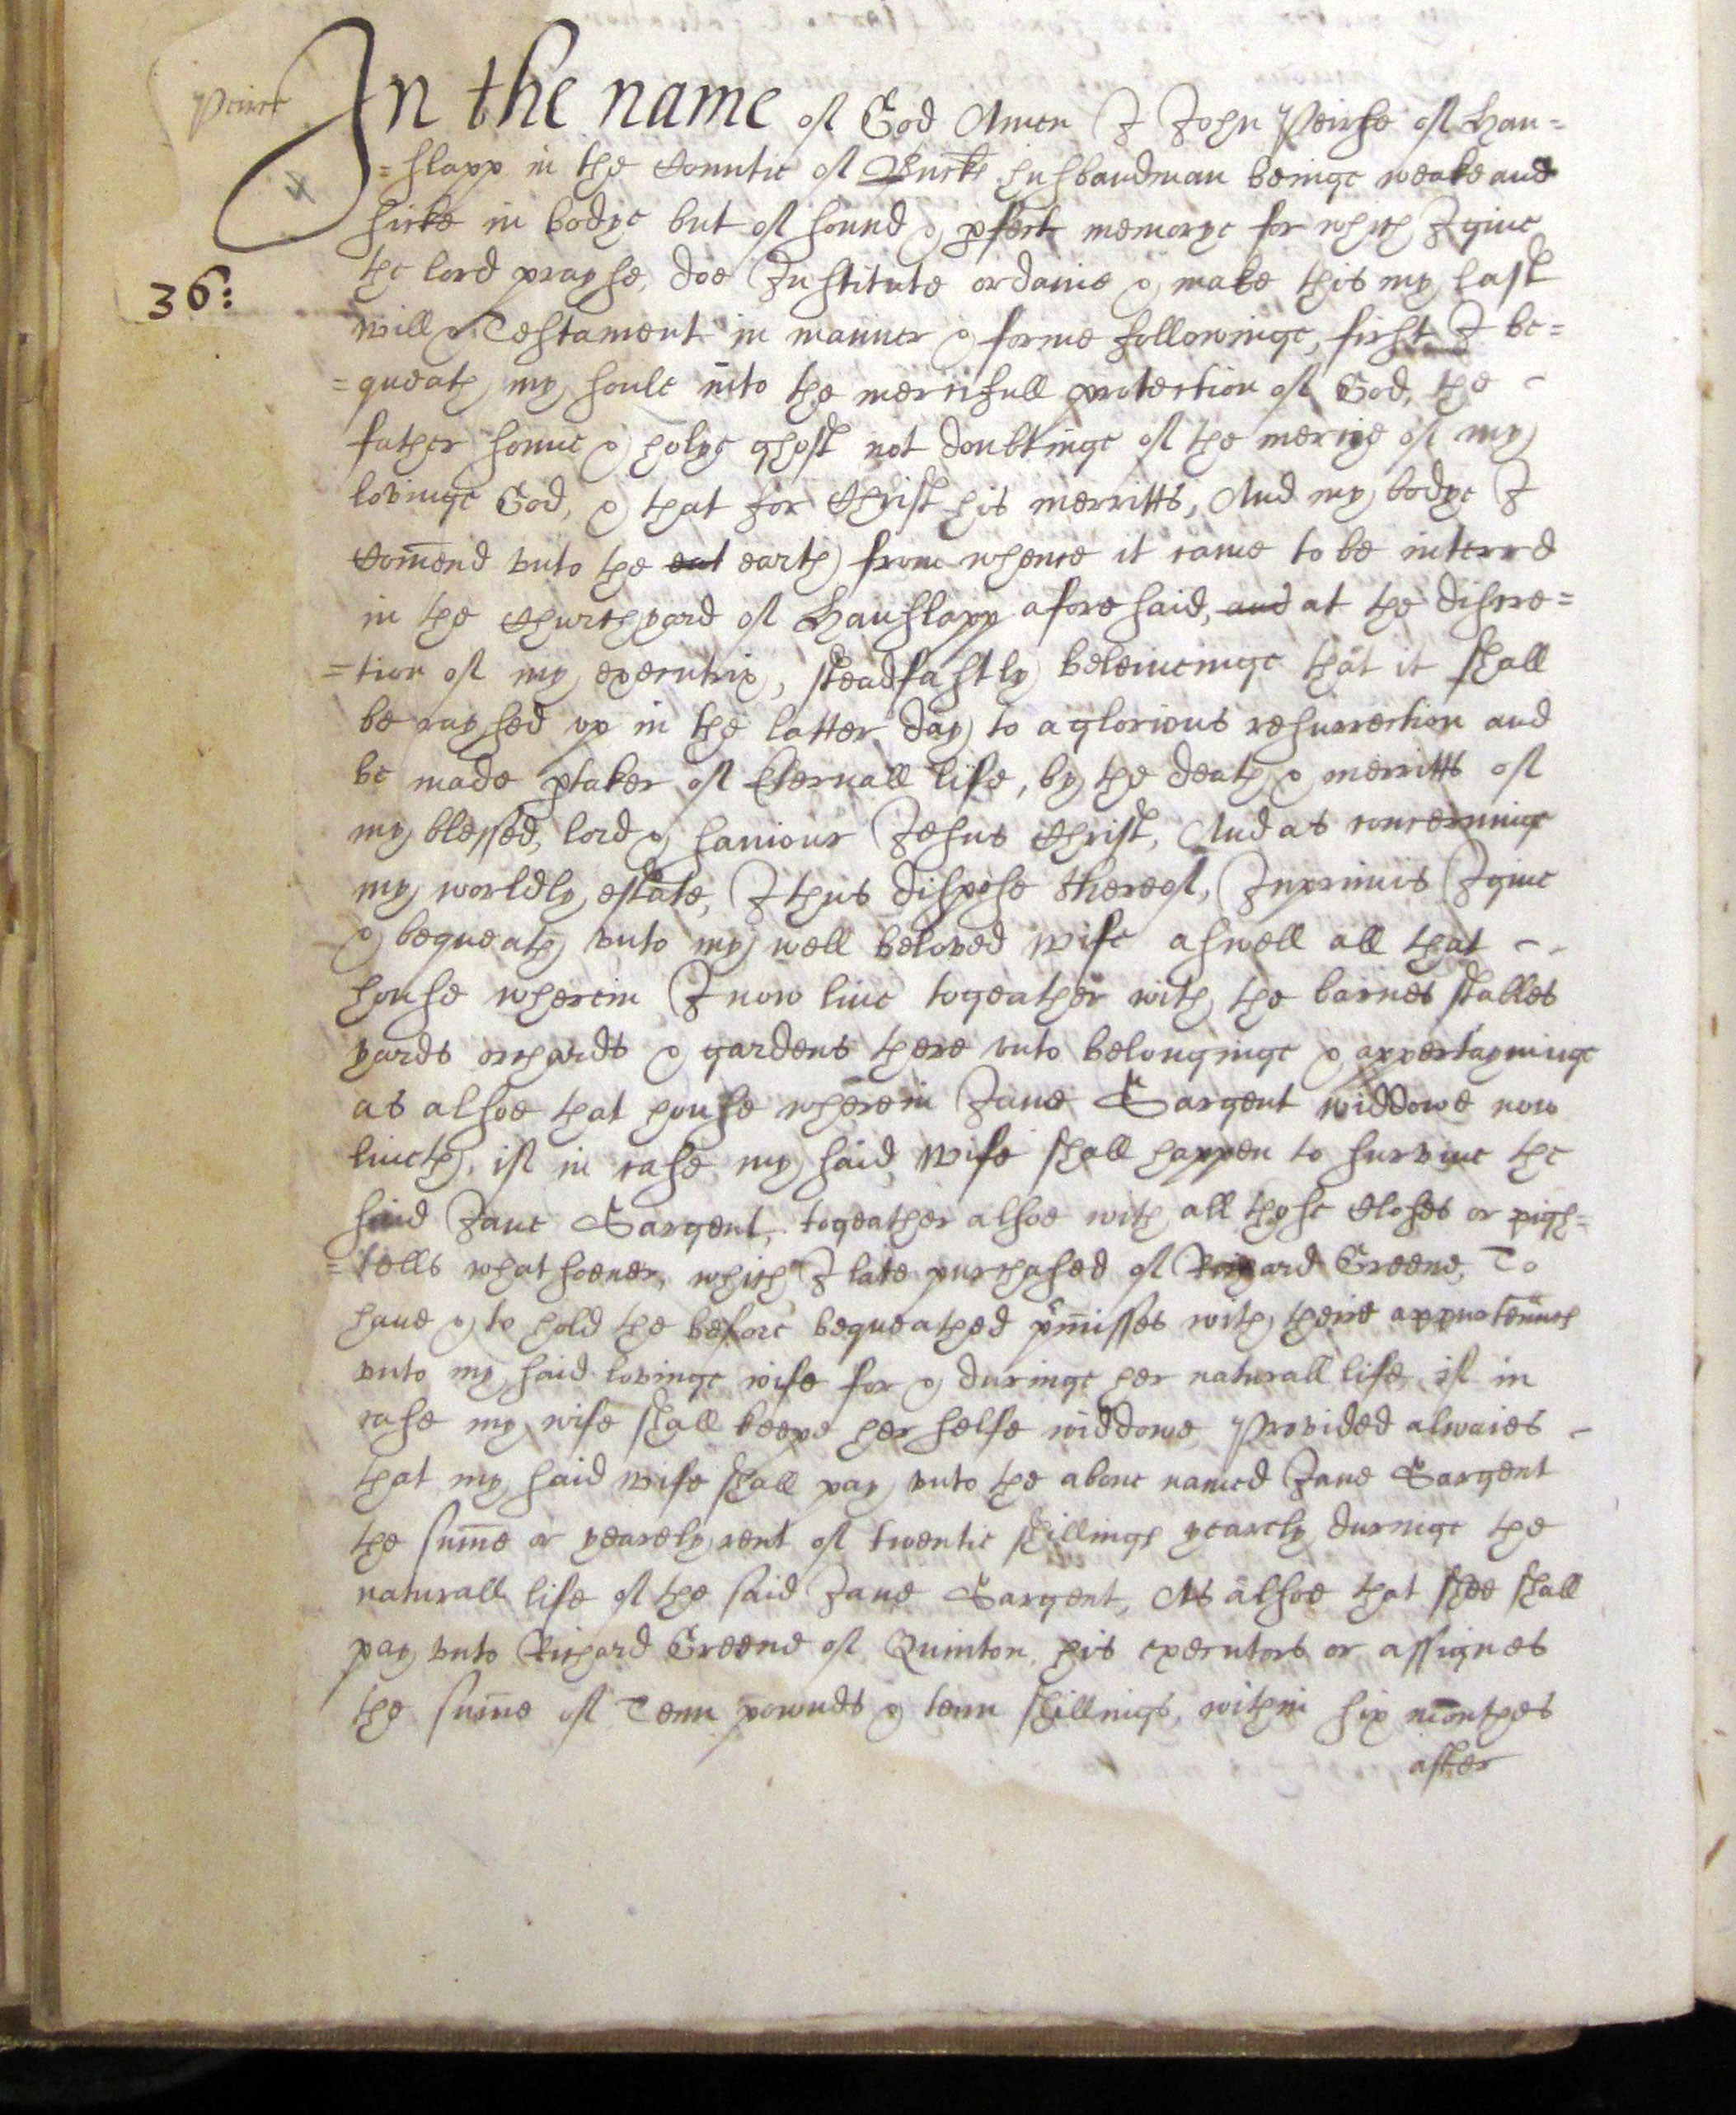 Peirce
In the name of God Amen I John Peirse of Han=
=slapp in the Countie of Bucks husbandman beinge weake and
sicke in bodye but of sound & pfect memorye for which I giue
36:
the lord prayse, doe Institute ordaine & make this my last
will & Testament in manner & forme followinge, first I be=
=queath my soule into the mercifull protection of God, the
father sonne & holye ghost not doubtinge of the mercye of my
lovinge God, & that for Christ his merritts, And my bodye I
Com̄end vnto the eat earth from whence it came to be interrd
in the Churchyard of Hanslapp aforesaid, and at the discre=
=tion of my executrix, steadfastly beleiueinge that it shall
be raysed vp in the latter day to a glorious resurrection and
be made ptaker of Eternall life, by the death & merritts of
my blessed, lord & sauiour Jesus Christ, And as concerninge
my worldly estate, I thus dispose thereof, Inprimis I giue
& bequeath vnto my well beloved wife aswell all that
house wherein I now liue togeather with the barnes stables
yards orchards & gardens there vnto belonginge & appertayninge
as alsoe that house wherein Jane Sargent widdowe now
liueth, if in case my said wife shall happen to surviue the
said Jane Sargent, togeather alsoe with all those closes or pigh=
=tells whatsoeuer, which I late purchased of Richard Greene, To
haue & to hold the before bequeathed pm̄isses with theire appurtēnces
vnto my said lovinge wife for & duringe her naturall life, if in
case my wife shall keepe her selfe widdowe Provided alwaies
that my said wife shall pay vnto the aboue named Jane Sargent
the sum̄e or yearely rent of twentie shillings yearely duringe the
naturall life of the said Jane Sargent, As alsoe that shee shall
pay vnto Richard Greene of Quinton his executors or assignes
the sum̄e of Tenn pownds & tenn shillings, within six monthes
after